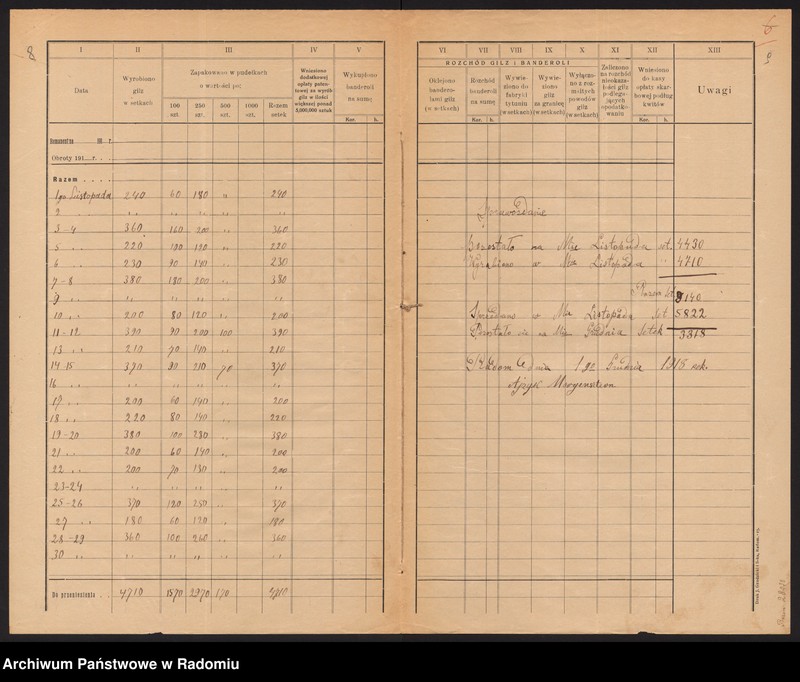 8
I II III IV V
Data
Wyrobiono gilz w setkach
Zapakowano w pudełkach o wartości po:
100 szt.
250 szt.
500 szt.
1000 szt.
Razem setek
Wniesiono dodatkowej opłaty paten-
towej za wyrób gilz w ilości większej ponad 5,000,000 sztuk
Wykupiono banderoli na sumę
Kor. h.
Remanent na 191 r.
Obroty 191 r.
Razem
1go Listopada 240 60 180 " 240
2 " " " " "
3-4 360 160 200 " 360
5 220 100 120 " 220
6 230 90 140 230
7-8 380 180 200 " 380
9 " " " " "
10 " 200 80 120 " 200
11-12 390 90 200 100 390
13 210 70 140 " 210
14-15 370 90 210 70 370
16 " " " "
17 200 60 140 " 200
18 " 220 80 140 " 220
19-20 380 100 280 " 380
21 200 60 140 " 200
22 200 70 130 " 200
23-24 " " " "
25-26 370 120 250 " 370
27 " 180 60 120 " 180
28-29 360 100 260 " 360
30 " " " " "
Do przeniesienia 4710 1570 2970 170 4710
VI VII VIII IX X XI XII XIII
ROZCHÓD GILZ I BANDEROLI
Oklejono bandero-
lami gilz (w setkach)
Rozchód banderoli na sumę
Kor. h.
Wywie-
ziono do fabryki tytuniu (w setkach)
Wywie-
ziono gilz za granicę (w setkach)
Wyłączo-
no z roz-
maitych powodów gilz (w setkach)
Zaliczono na rozchód nieokaza-
łości gilz podlega-
jących opodatko-
waniu
Wniesiono do kasy opłaty skar-
bowej podług kwitów
Kor. h.
Uwagi
Sprawozdanie
Pozostało na Mce Listopada st. 4430
Wyrobiono w Mce Listopada " 4710
Razem st. 9140
Sprzedano w Mce Listopada set 5822
Pozostało się na Mce Grudnia Setek 3318
Radom dnia 1go Grudnia 1918 rok.
Morgenstern
Archiwum Państwowe w Radomiu